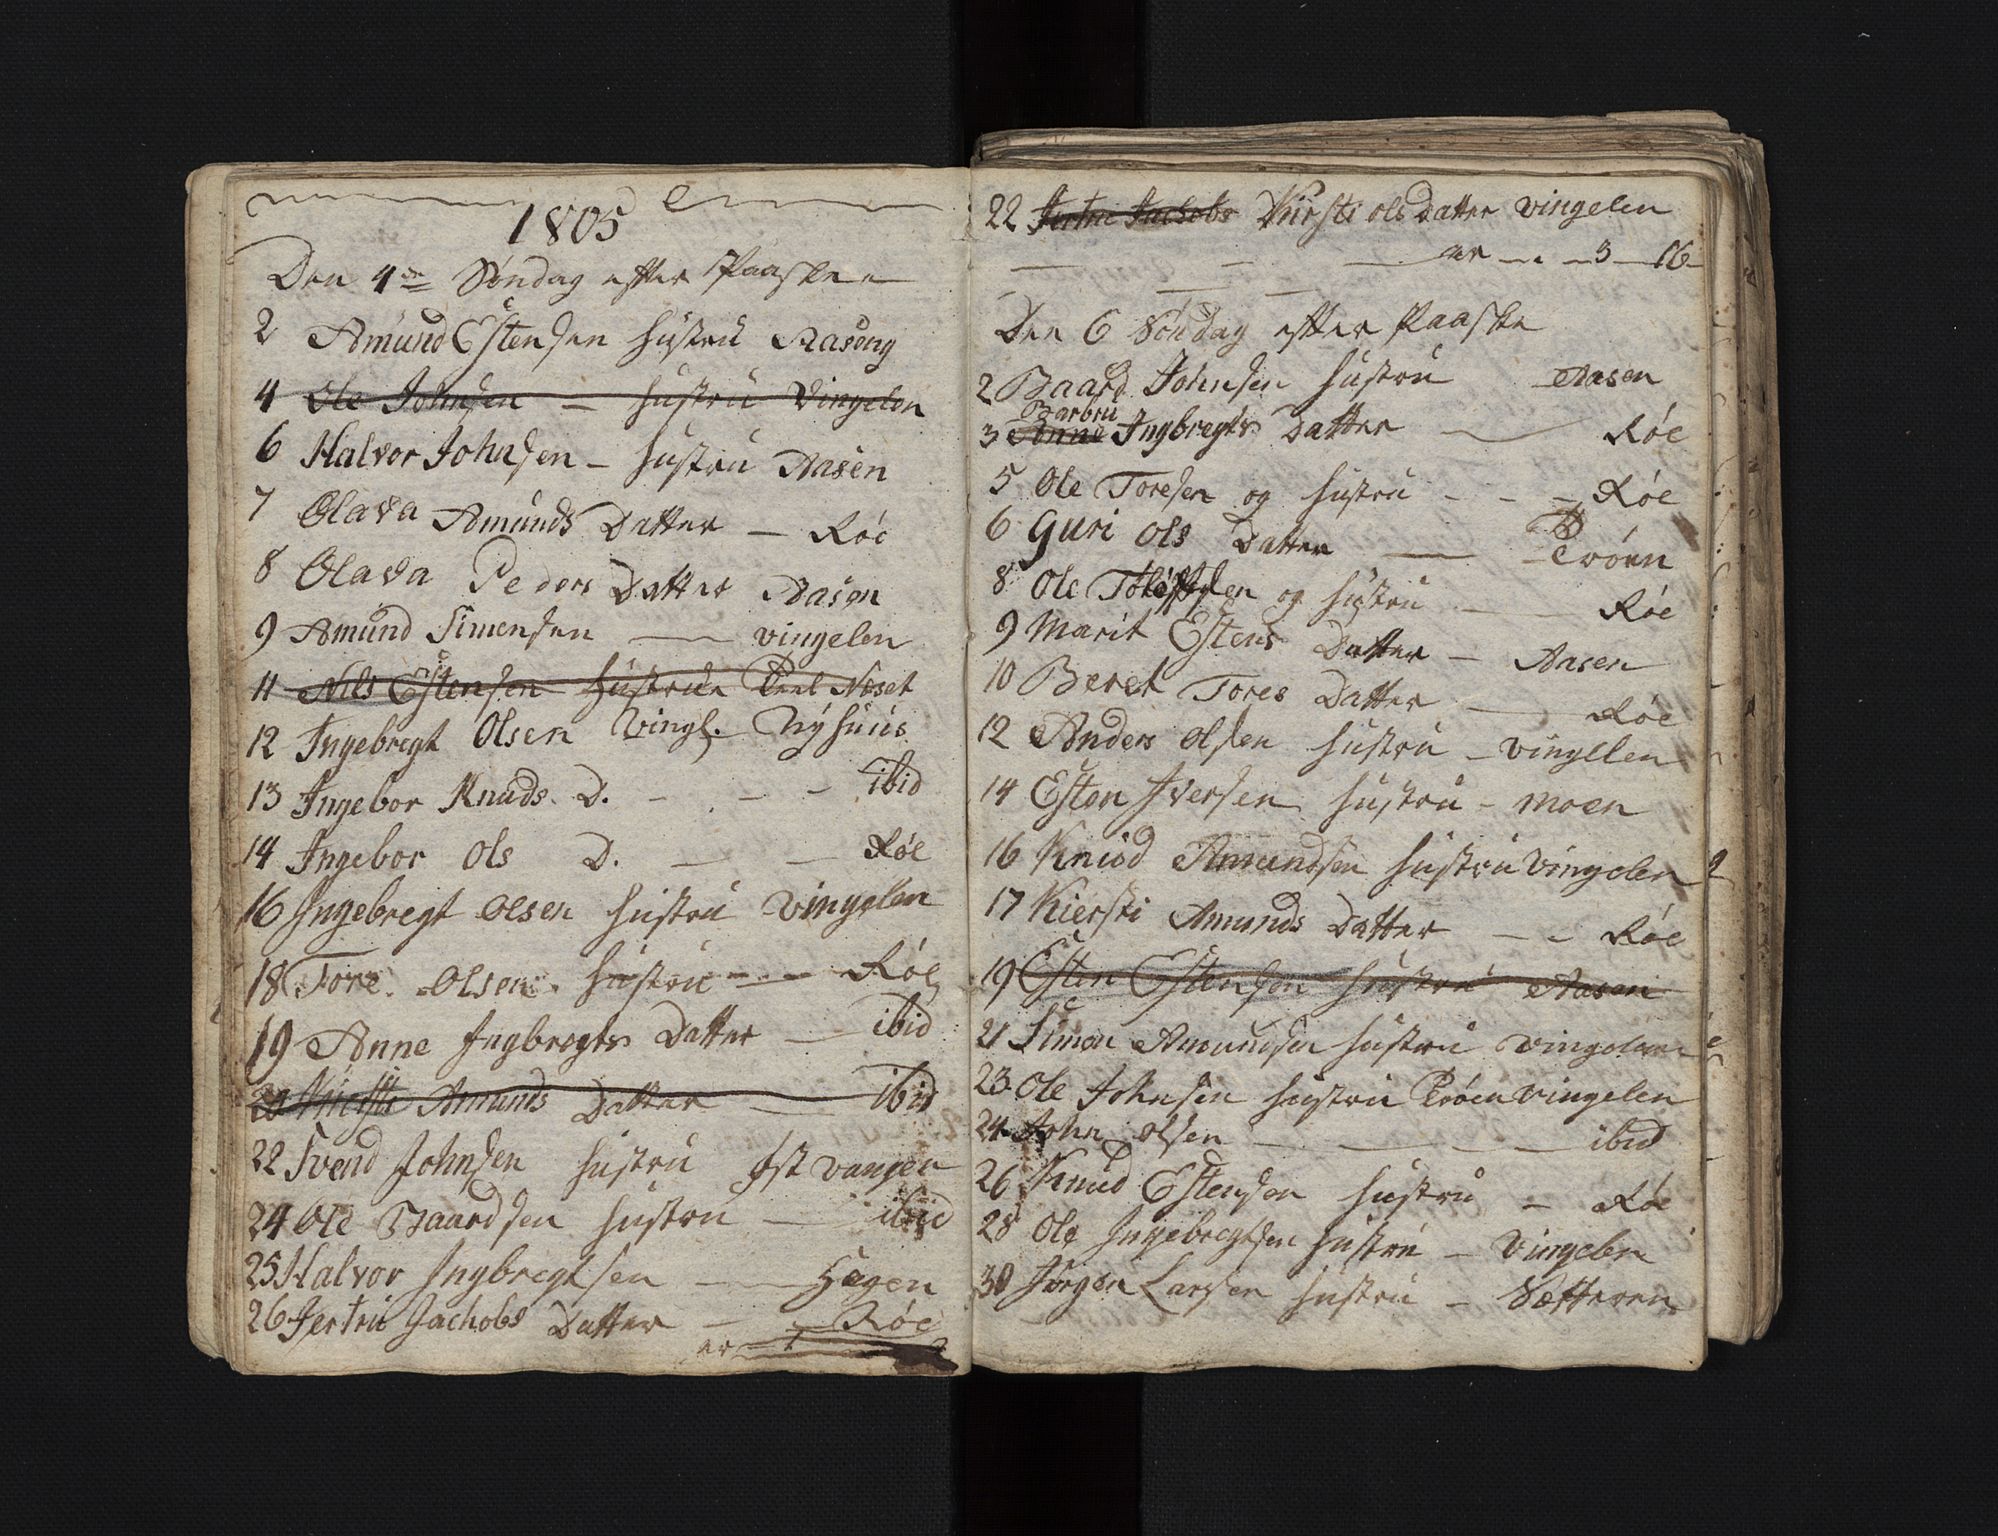 1805
Den 4de Søndag efter Paaske
2 Amund Estensen hustru Aasong
4 Ole Johnsen – hustru Vingelen
6 Halvor Johnsen – hustru Aasen
7 Olava Amunds Datter – Røe
8 Olava Peders Datter Aasen
9 Amund Simensen — vingelen
11 Nils Estensen hustrue Næset
12 Ingebregt Olsen Vingl. Nÿhuus
13 Ingebor Knuds. D. - - - ibid
14 Ingebor Ols D. — — Røe
16 Ingebregt Olsen hustru Vingelen
18 Tore Olsen hustru - - - Røe
19 Anne Ingbregts Datter — ibid
20 Kiersti Amunds Datter — ibid
22 Svend Johnsen hustru Østvangen
24 Ole Baardsen hustru — ibid
25 Halvor Ingbregtsen — Hegen
26 Jertru Jachobs Datter — Røe
er
22 Jertru Jachobs Kiersti ols Datter Vingelen
er - - - 3 — 16
Den 6 Søndag efter Paaske
2 Baard Johnsen hustru Aasen
Barbru
3 Anne Ingbregts Datter — Røe
5 Ole Toresen og hustru - - - Røe
6 Guri Ols Datter — Trøen
8 Ole og hustru — Røe
9 Marit Estens Datter – Aasen
10 Beret Tores Datter — Røe
12 Anders Olsen hustru – Vingellen
14 Esten Iversen hustru – Moen
16 Knud Amundsen hustru Vingelen
17 Kiersti Amunds Datter – – Røe
19 Esten Estensen hustru Aasen
21 Simen Amundsen hustru Vingelen
23 Ole Johnsen hustru Trøen Vingelen
24 John Olsen - — - - ibid
26 Knud Estensen hustru – Røe
28 Ole Ingebregtsen hustru – Vingelen
30 Jørgen Larsen hustru – Sætteren